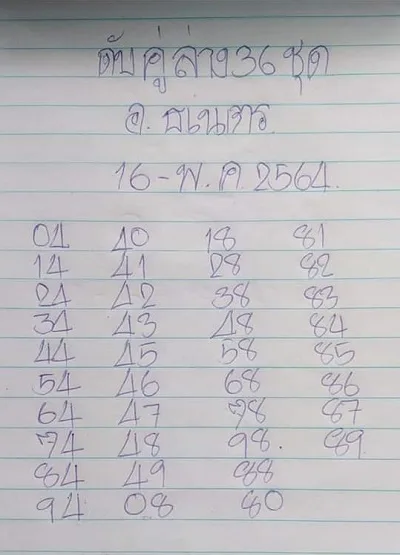 ดับคู่ล่าง 36 ชุด
อ. ธเนตร
16 - พ. ค. 2564.
04 40 18 81
14 41 28 82
24 42 38 83
34 43 48 84
44 45 58 85
54 46 68 86
64 47 78 87
74 48 98. 89
84 49 88
94 08 80